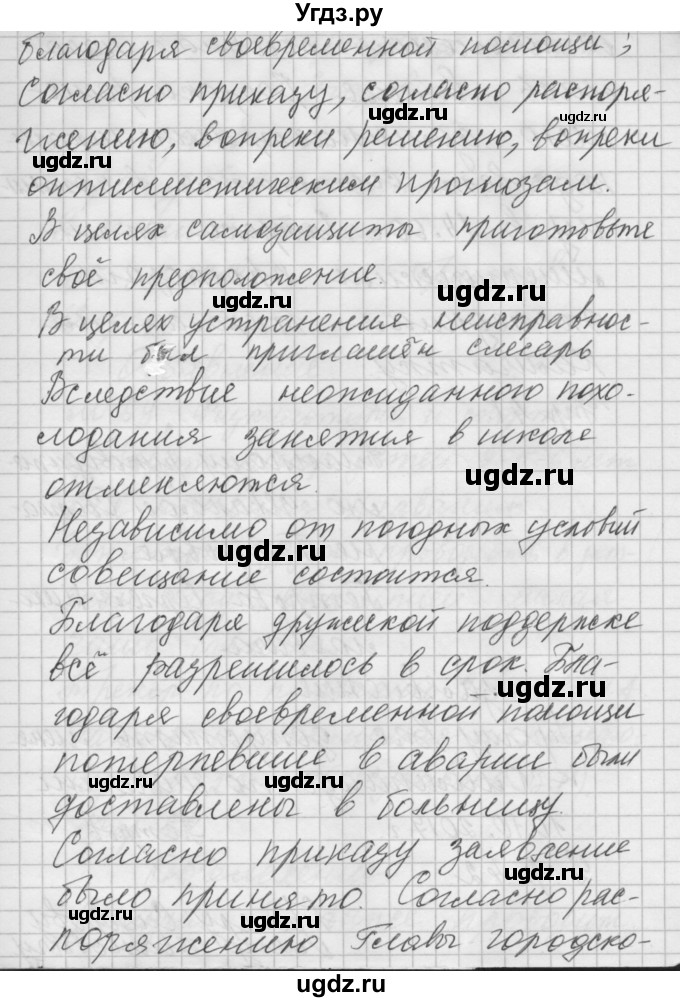 Угдз.ру
благодаря своевременной помощи;
Согласно приказу, согласно распоря-
ugdz.ru
жению, вопреки решению, вопреки
ugdz.ru ugdz.ru
оптимистическим прогнозам.
В целях самозащиты приготовьте
своё предположение.
ugdz.ru ugdz.ru
В целях устранения неисправнос-
ти был приглашён слесарь
Вследствие неожиданного похо-
лодания занятия в школе
ugdz.ru
отменяются.
Независимо от погодных условий
ugdz.ru
совещание состоится.
Благодаря дружской поддержке
всё разрешилось в срок. Бла-
ugdz.ru
годаря своевременной помощи
потерпевшие в аварии были
ugdz.ru ugdz.ru
доставлены в больницу.
Согласно приказу заявление
было принято. Согласно рас-
ugdz.ru
поряжению Главы городско-
ugdz.ru
ugdz.ru